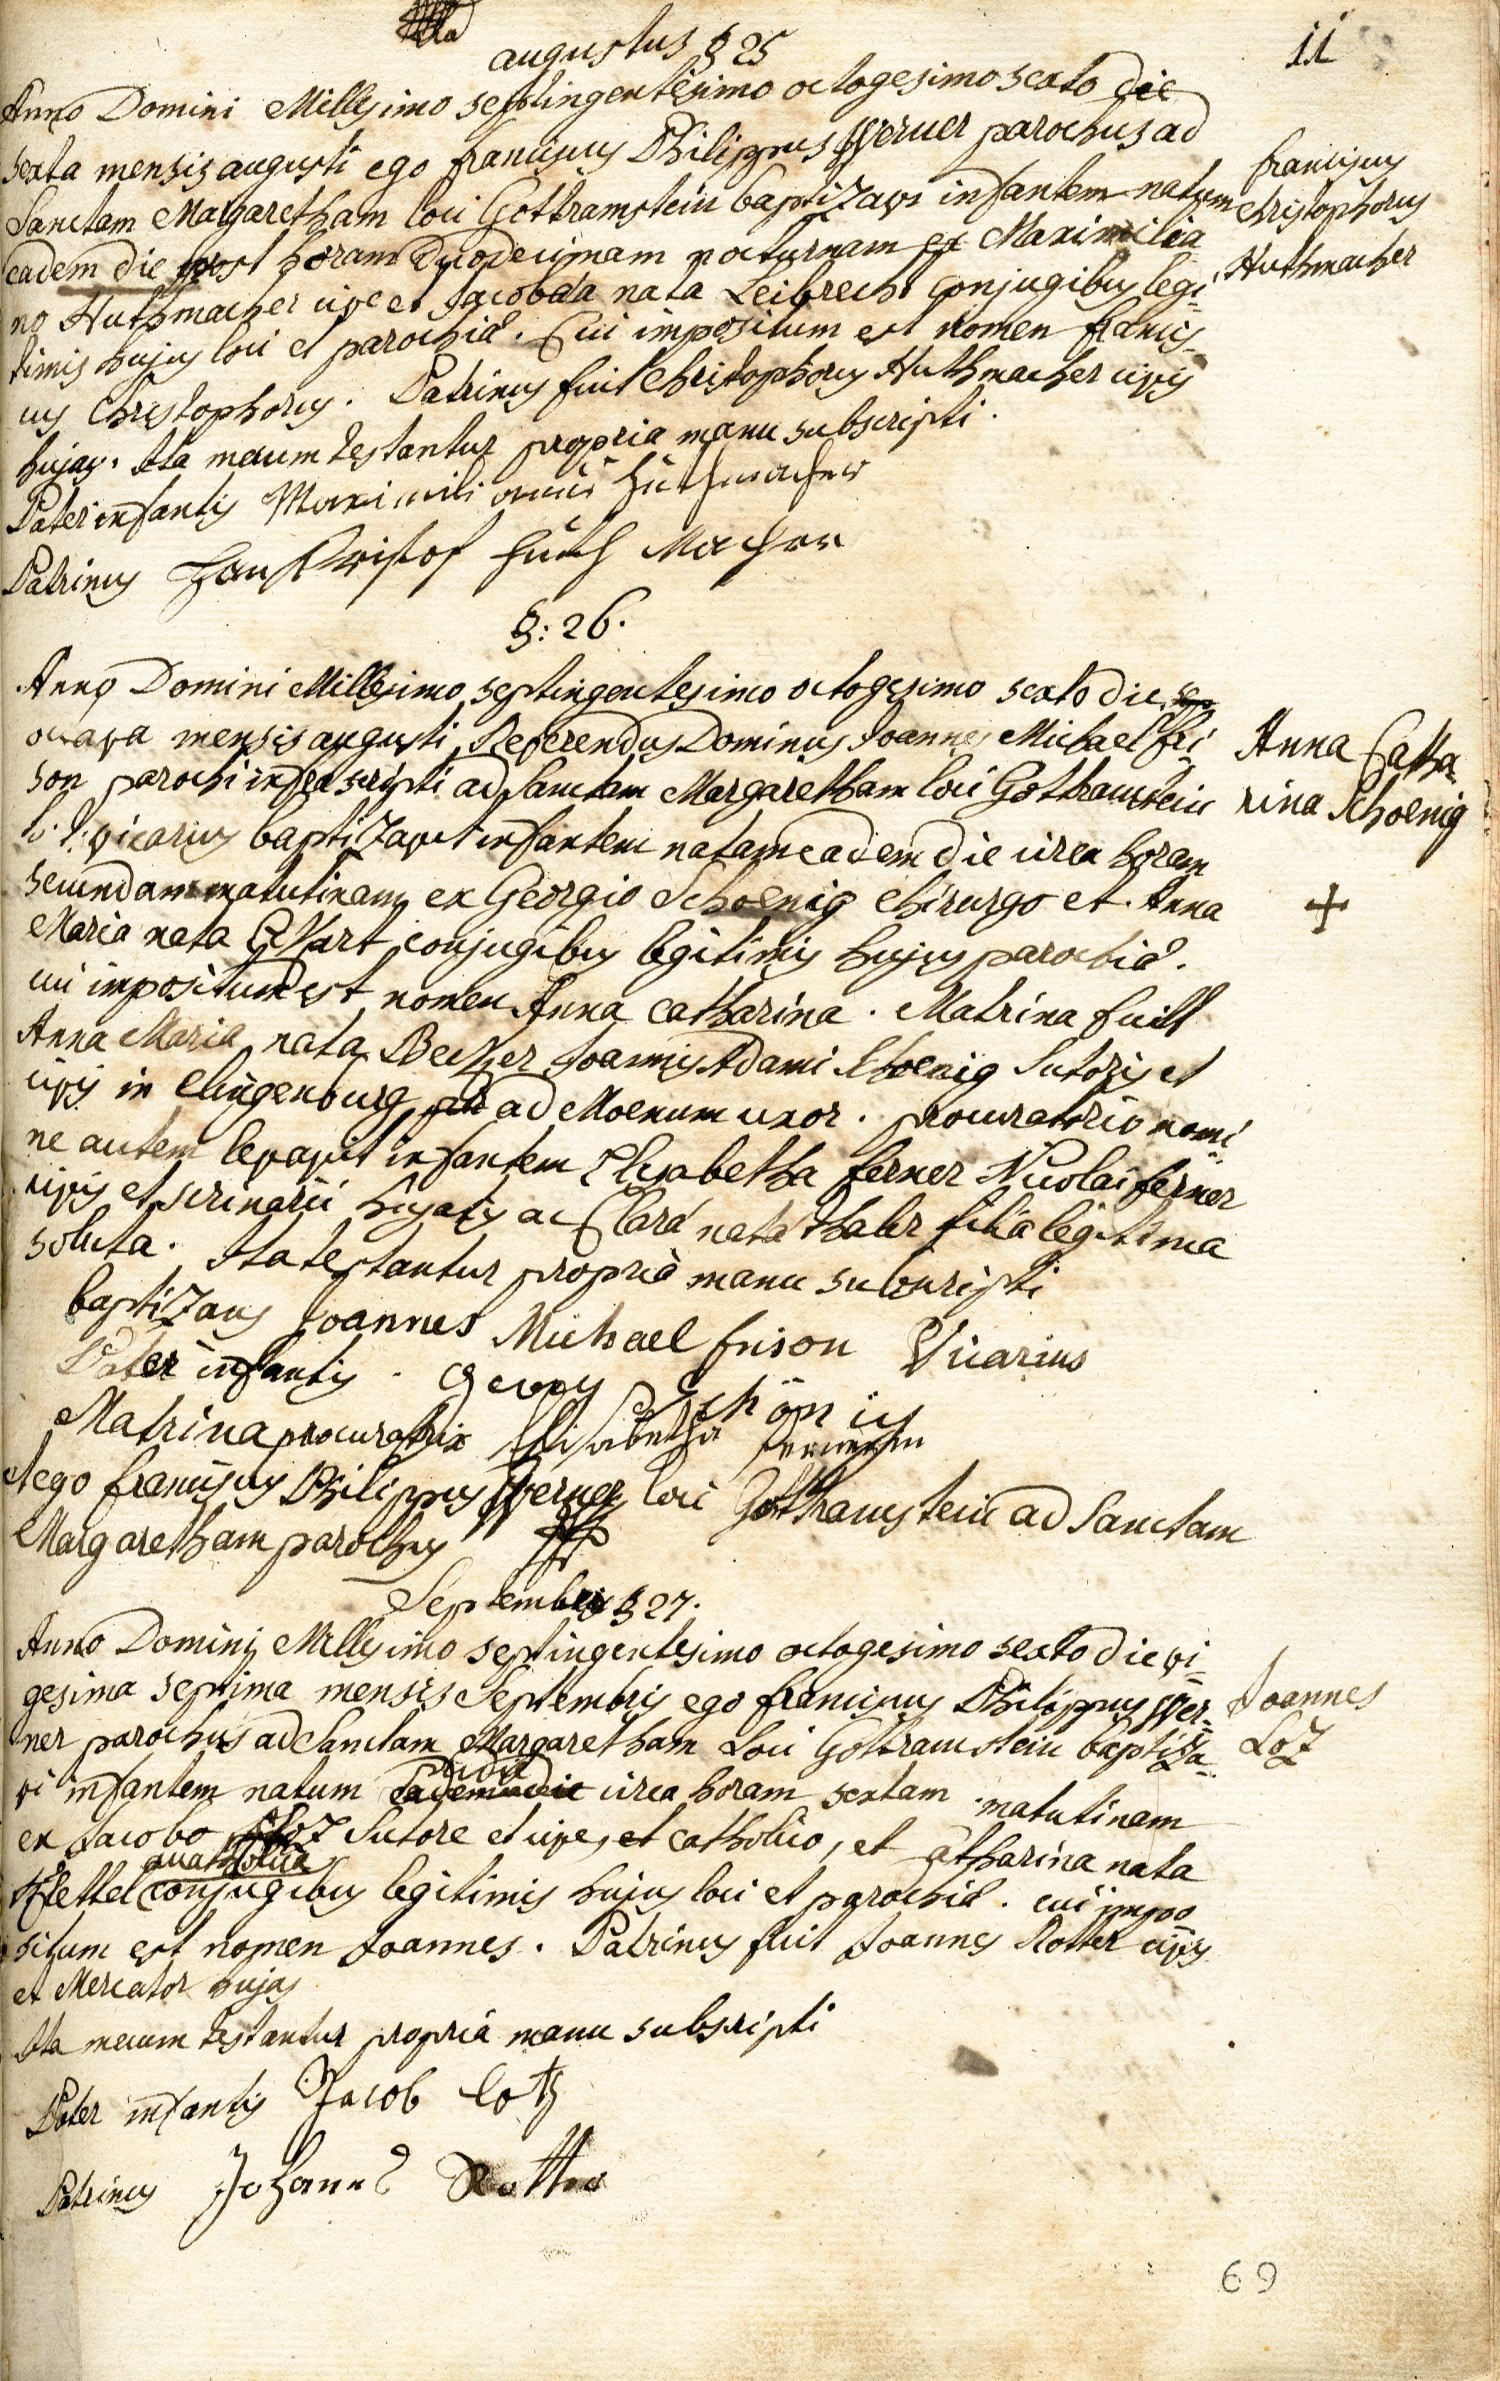 augustus § 25
11
Anno Domini Millesimo septingentesimo octogesimo sexto die
sexta mensis augusti ego franciscus Philippus Werner parochus ad
Sanctam Margaretham loci Gottramstein baptizavi infantem natum
eadem die post horam duodecimam nocturnam ex Maximilia
no Huthmacher cive et Jacobda nata Leibrecht conjugibus legi-
timis hujus loci et parochiæ. Cui impositum est nomen francis-
cus Christophorus. Patrinus fuit Christophorus Huthmacher civis
hujas. Ita mecum testantur propria manu subscripti.
franciscus
Christophorus
Huthmacher
Pater infantis Maximili anus Huthmacher
Patrinus Huth Macher
§: 26.
Anno Domini Millesimo septingentesimo octogesimo sexto die
octava mensis augusti Reverendus Dominus Joannes Michael fri
son parochi infra scripti ad Sanctam Margaretham loci Gothramstein
h. t. vicarius baptizavit infantem natam eadem die circa horam
secundam matutinam ex Georgio Schoenig chirurgo et Anna
Maria nata conjugibus legitimis hujus parochiæ.
cui impositum est nomen Anna catharina. Matrina fuit
Anna Maria nata Becker Joannis Adami Schoenig Sutoris et
civis in Clingenburg ad Moenum uxor. procuratorio nomi
ne autem levavit infantem Elisabetha ferner Nicolai ferner
civis et scrinarii hujatis ac Clarâ nata Thaler filia legitima
soluta. Ita testantur propriâ manu subscripti
Anna Catha
rina Schoenig
+
baptizans Joannes Michael frison Vicarius
Pater infantis. Georg Schönig
Matrina procuratrix Elisabetha
et ego franciscus Philippus Werner loci Gothramstein ad Sanctam
Margaretham parochus
September § 27.
Anno Domini Millesimo septingentesimo octogesimo sexto die vi-
gesima septima mensis Septembris ego franciscus Philippus Wer-
ner parochus ad Sanctam Margaretham Loci Gottramstein baptiza-
vi infantem natum eadem die circa horam sextam matutinam
ex Jacobo Loz Sutore et cive, et catholico, et Catharina nata
conjugibus legitimis hujus loci et parochiæ. cui impo
situm est nomen Joannes. Patrinus fuit Joannes Rotter civis
et Mercator hujas
Joannes
Loz
Ita mecum testantur propriâ manu subscripti
Pater infantis Jacob Lotz
Patrinus Johannes Rotter
69